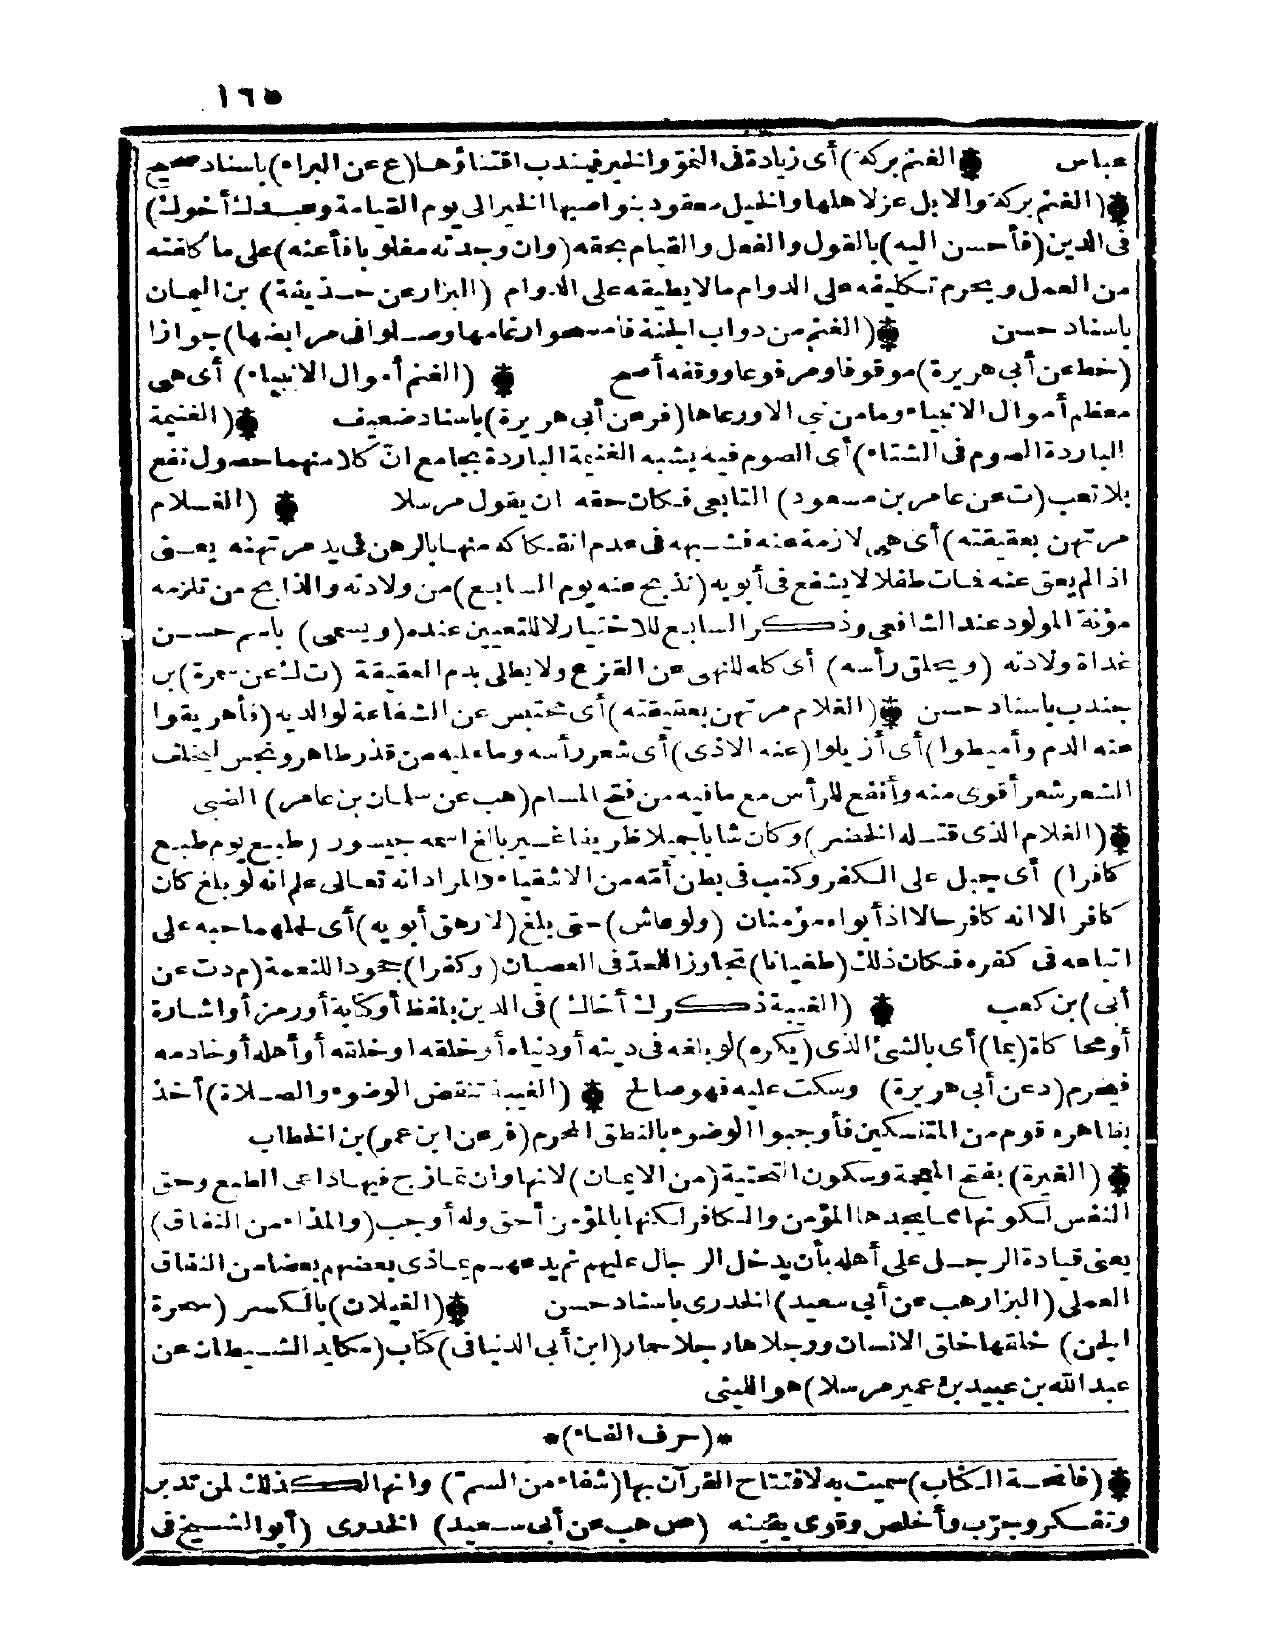 ١٦٥
عباس (الغنم بركة) أى زيادة فى النمو والخير فيندب اقتناؤها (ع عن البراء) باسناد صحيح
(الغنم بركة والابل عز لاهلها والخيل معقود بنواصيها الخير الى يوم القيامة وعبدك أخوك)
فى الدين (فأحسن اليه) بالقول والفعل والقيام بحقه (وان وجدته مغلوبا فأعنه) على ما كلفته
من العمل ويحرم تكليفه على الدوام مالا يطيقه على الدوام (البزار عن حذيفة) بن اليمان
باسناد حسن (الغنم من دواب الجنة فامسحوا رغامها وصلوا فى مرابضها) جوازا
(خط عن أبى هريرة) موقوفا ومرفوعا ووقفه أصح (الغنم أموال الانبياء) أى هى
معظم أموال الانبياء وما من نبى الا ورعاها (فر عن أبى هريرة) باسناد ضعيف (الغنيمة
الباردة الصوم فى الشتاء) أى الصوم فيه يشبه الغنيمة الباردة بجامع ان كلا منهما حصول نفع
بلا تعب (ت عن عامر بن مسعود) التابعى فكان حقه ان يقول مرسلا (الغلام
مرتهن بعقيقته) أى هى لازمة عنه فشبهه فى عدم انفكاكه منها بالرهن فى يد مرتهنه يعنى
اذا لم يعق عنه فمات طفلا لا يشفع فى أبويه (تذبح عنه يوم السابع) من ولادته والذابح من تلزمه
مؤنة المولود عند الشافعى وذكر السابع للاختيار لا للتعيين عنده (ويسمى) باسم حسن
غداة ولادته (ويحلق رأسه) أى كله للنهى عن القزع ولا يطلى بدم العقيقة (ت ك عن سمرة) بن
جندب باسناد حسن (الغلام مرتهن بعقيقته) أى محتبس عن الشفاعة لوالديه (فأهريقوا
عنه الدم وأميطوا) أى أزيلوا (عنه الاذى) أى شعر رأسه وما عليه من قذر طاهر ونجس ليخلف
الشعر شعر أقوى منه وأنفع للرأس مع مافيه من فتح المسام (هب عن سلمان بن عامر) الضبى
(الغلام الذى قتله الخضر) وكان شابا جميلا ظريفا غير بالغ اسمه جيسور (طبع يوم طبع
كافرا) أى جبل على الكفر وكتب فى بطن أمه من الاشقياء والمراد انه تعالى علم انه لو بلغ كان
كافر الا انه كافر حالا اذ أبواه مؤمنان (ولو عاش) حتى بلغ (لارهق أبويه) أى لحملهما حبه على
اتباعه فى كفره فكان ذلك (طغيانا) تجاوزا للحد فى العصيان (وكفرا) جحودا للنعمة (م د ت عن
أبى) بن كعب (الغيبة ذكرك أخاك) فى الدين بلفظ أو كتابة أو رمز أو اشارة
أو محاكاة (بما) أى بالشئ الذى (يكره) لو بلغه فى دينه أو دنياه أو خلقه او خلقته أو أهله أو خادمه
فيحرم (د عن أبى هريرة) وسكت عليه فهو صالح (الغيبة تنقض الوضوء والصلاة) أخذ
بظاهره قوم من المتنسكين فأوجبوا الوضوء بالنطق المحرم (فر عن ابن عمر) بن الخطاب
(الغيرة) بفتح المعجمة وسكون التحتية (من الايمان) لانها وان تمازج فيها داعى الطبع وحق
النفس لكونها مما يجدها المؤمن والكافر لكنها بالمؤمن أحق وله أوجب (والمذاء من النفاق)
يعنى قيادة الرجل على أهله بأن يدخل الرجال عليهم ثم يدعهم يماذى بعضهم بعضا من النفاق
العملى (البزار هب عن أبى سعيد) الخدرى باسناد حسن (الغيلان) بالكسر (سحرة
الجن) خلقها خلق الانسان ورجلاها رجلا حمار (ابن أبى الدنيا فى) كتاب (مكايد الشيطان عن
عبد الله بن عبيد بن عمير مرسلا) هو الليثى
*(حرف الفاء)*
(فاتحة الكتاب) سميت به لافتتاح القرآن بها (شفاء من السم) وانها لكذلك لمن تدبر
وتفكر وجرب وأخلص وقوى يقينه (ص هب عن أبى سعيد) الخدرى (أبو الشيخ فى